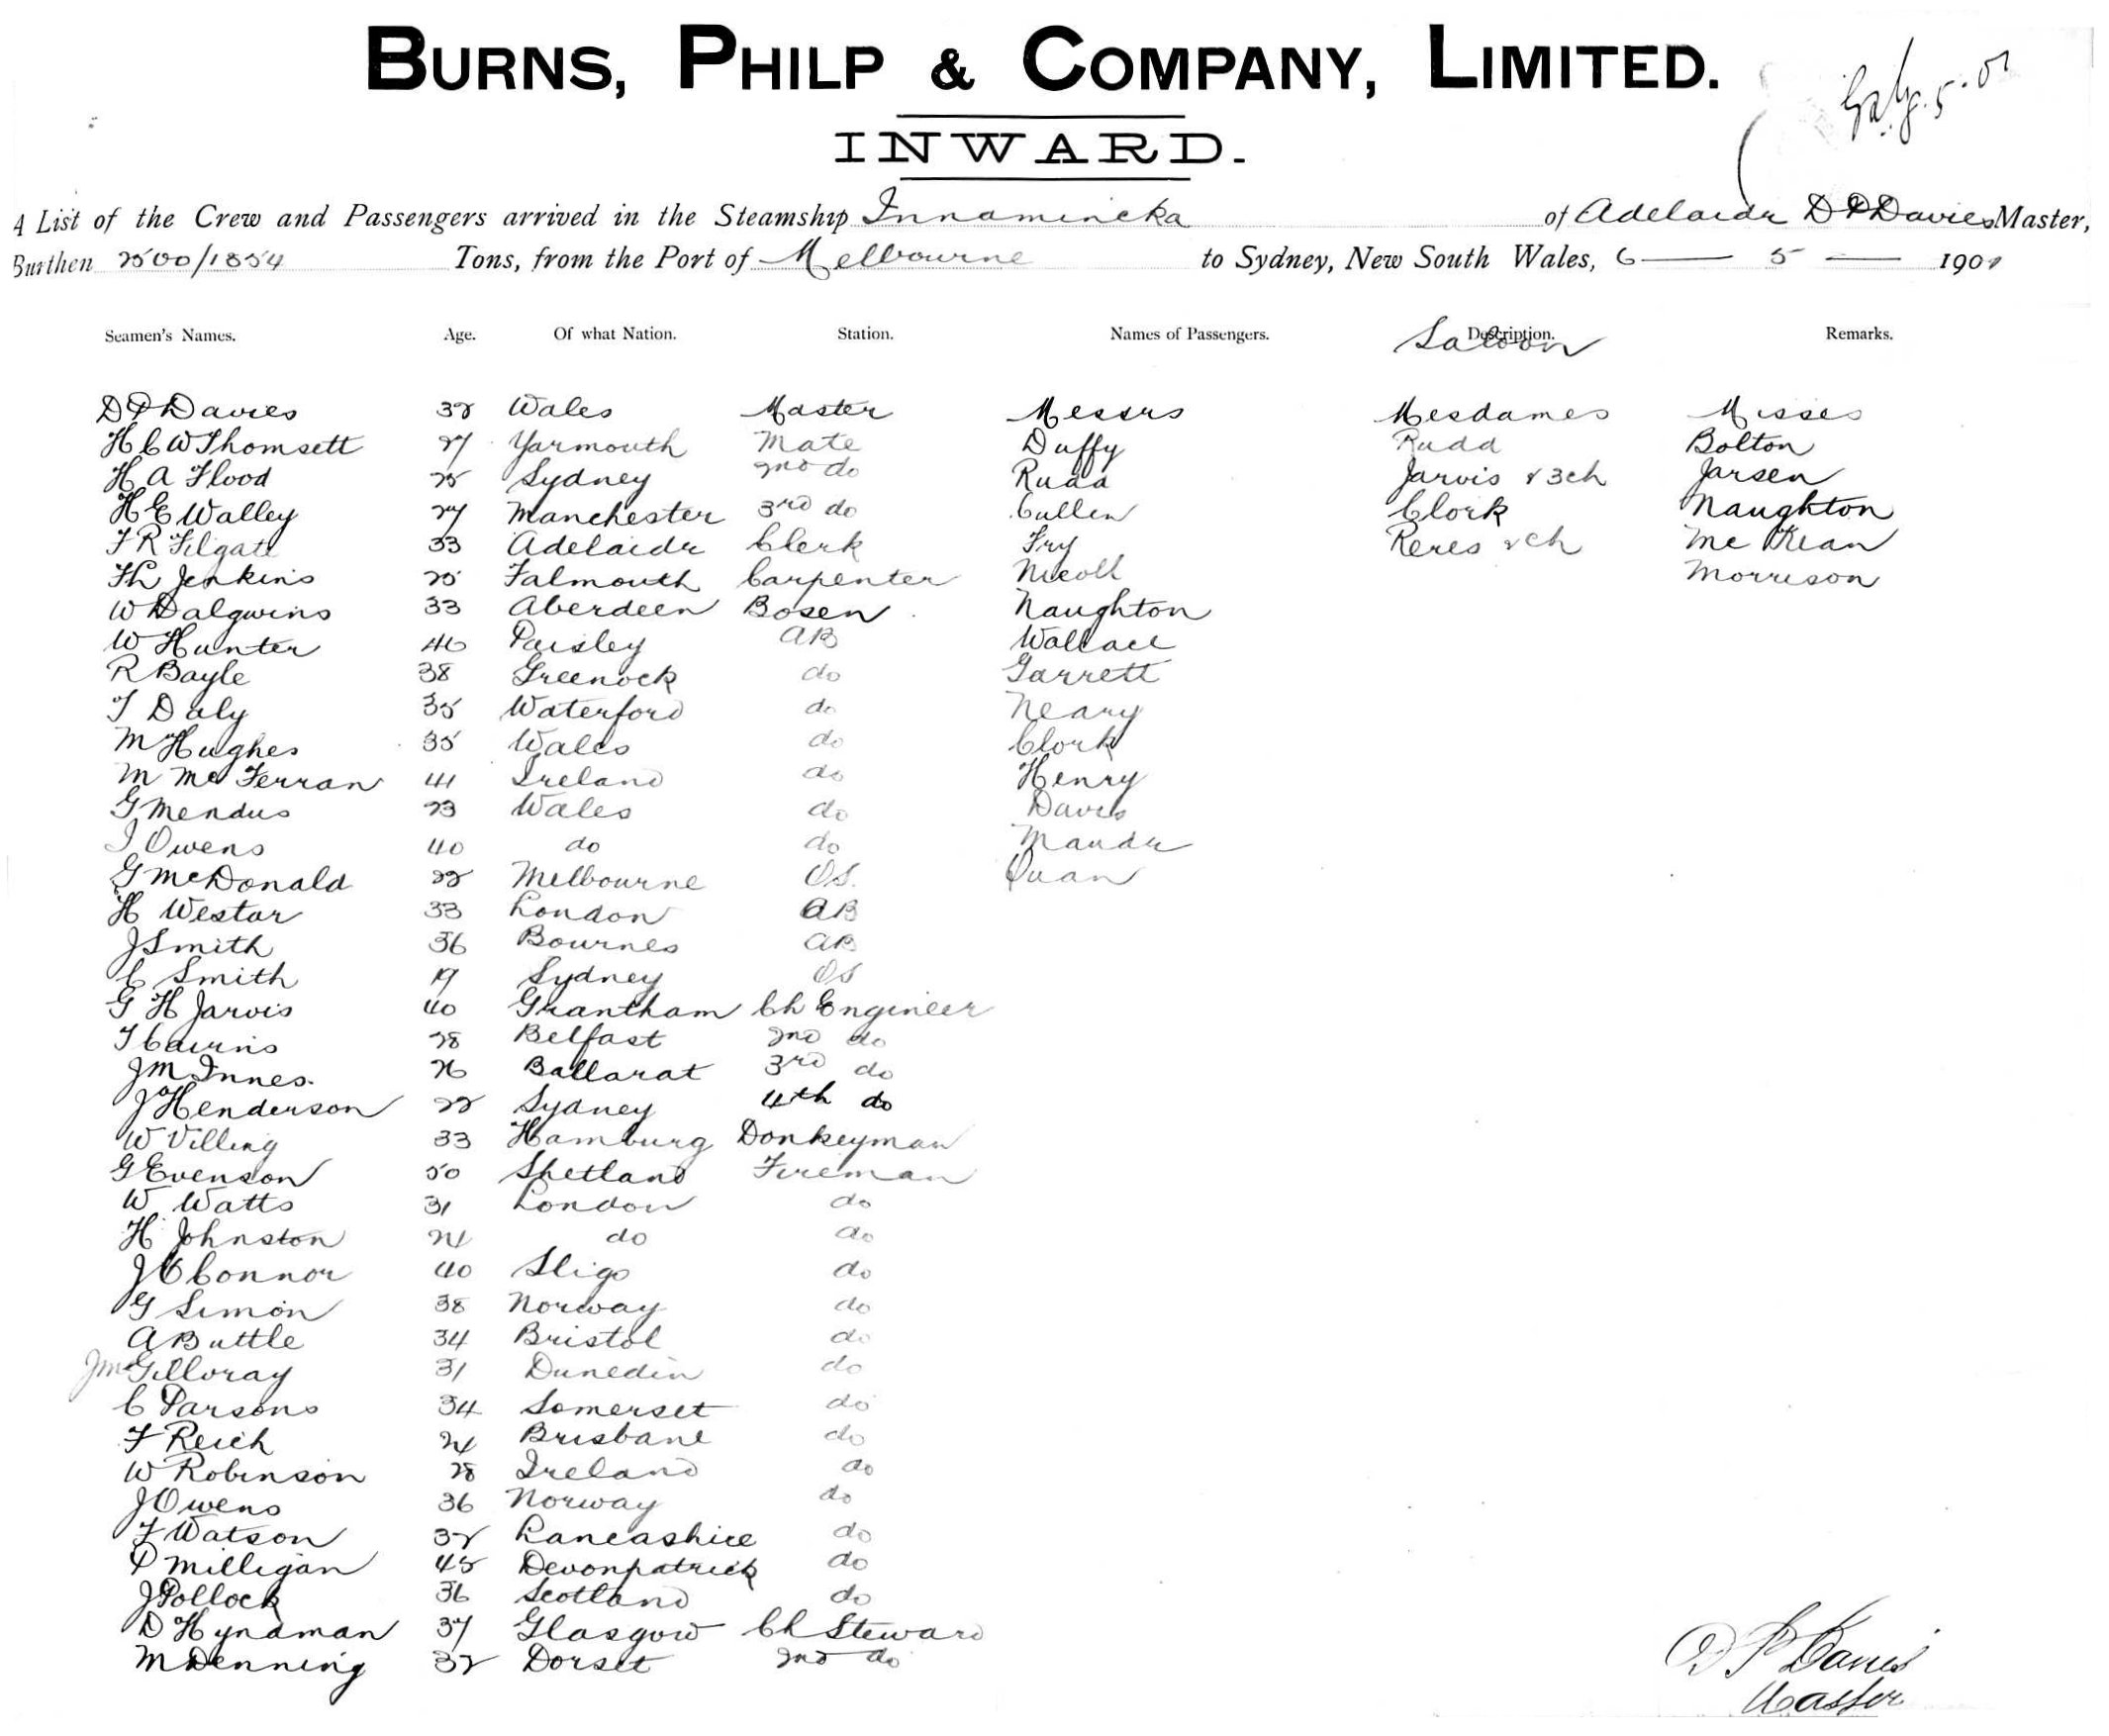 BURNS, PHILP & COMPANY, LIMITED.
INWARD.
A List of the Crew and Passengers arrived in the Steamship Innamincka of Adelaide D P Davies Master,
Burthen 2500/1854 Tons, from the Port of Melbourne to Sydney, New South Wales, 6 — 5 — 1901
Seamen's Names. Age. Of what Nation. Station. Names of Passengers. Description. Remarks.
Saloon
D P Davies 32 Wales Master Messrs Mesdames Misses
H C W Thomsett 27 Yarmouth Mate Duffy Rudd Bolton
H A Flood 25 Sydney 2nd do Rudd Jarvis & 3 ch Jarsen
H E Walley 27 Manchester 3rd do Cullen Clork Naughton
F R Filgate 33 Adelaide Clerk Fry Reres & ch Mc Kean
Th Jenkins 25 Falmouth Carpenter Nicoll Morrison
W Dalgwins 33 Aberdeen Bosen Naughton
W Hunter 46 Paisley AB Wallace
R Bayle 38 Greenock do Garrett
T Daly 35 Waterford do Neary
M Hughes 35 Wales do Clork
M McFerran 41 Ireland do Henry
G Mendus 23 Wales do Davis
J Owens 40 do do Maude
G McDonald 22 Melbourne OS. Quan
H Westar 33 London AB
J Smith 36 Bournes AB
C Smith 19 Sydney OS
G H Jarvis 40 Grantham Ch Engineer
T Cairns 28 Belfast 2nd do
J M Innes. 26 Ballarat 3rd do
J Henderson 22 Sydney 4th do
W Villing 33 Hamburg Donkeyman
G Evenson 50 Shetland Fireman
W Watts 31 London do
H Johnston 24 do do
J O Connor 40 Sligo do
G Simon 38 Norway do
A Buttle 34 Bristol do
J McGilloray 31 Dunedin do
C Parsons 34 Somerset do
F Reich 24 Brisbane do
W Robinson 28 Ireland do
J Owens 36 Norway do
F Watson 32 Lancashire do
P Milligan 45 Devonpatrick do
J Pollock 36 Scotland do
D Hyndman 37 Glasgow Ch Steward
M Denning 32 Dorset 2nd do
D P Davies
Master